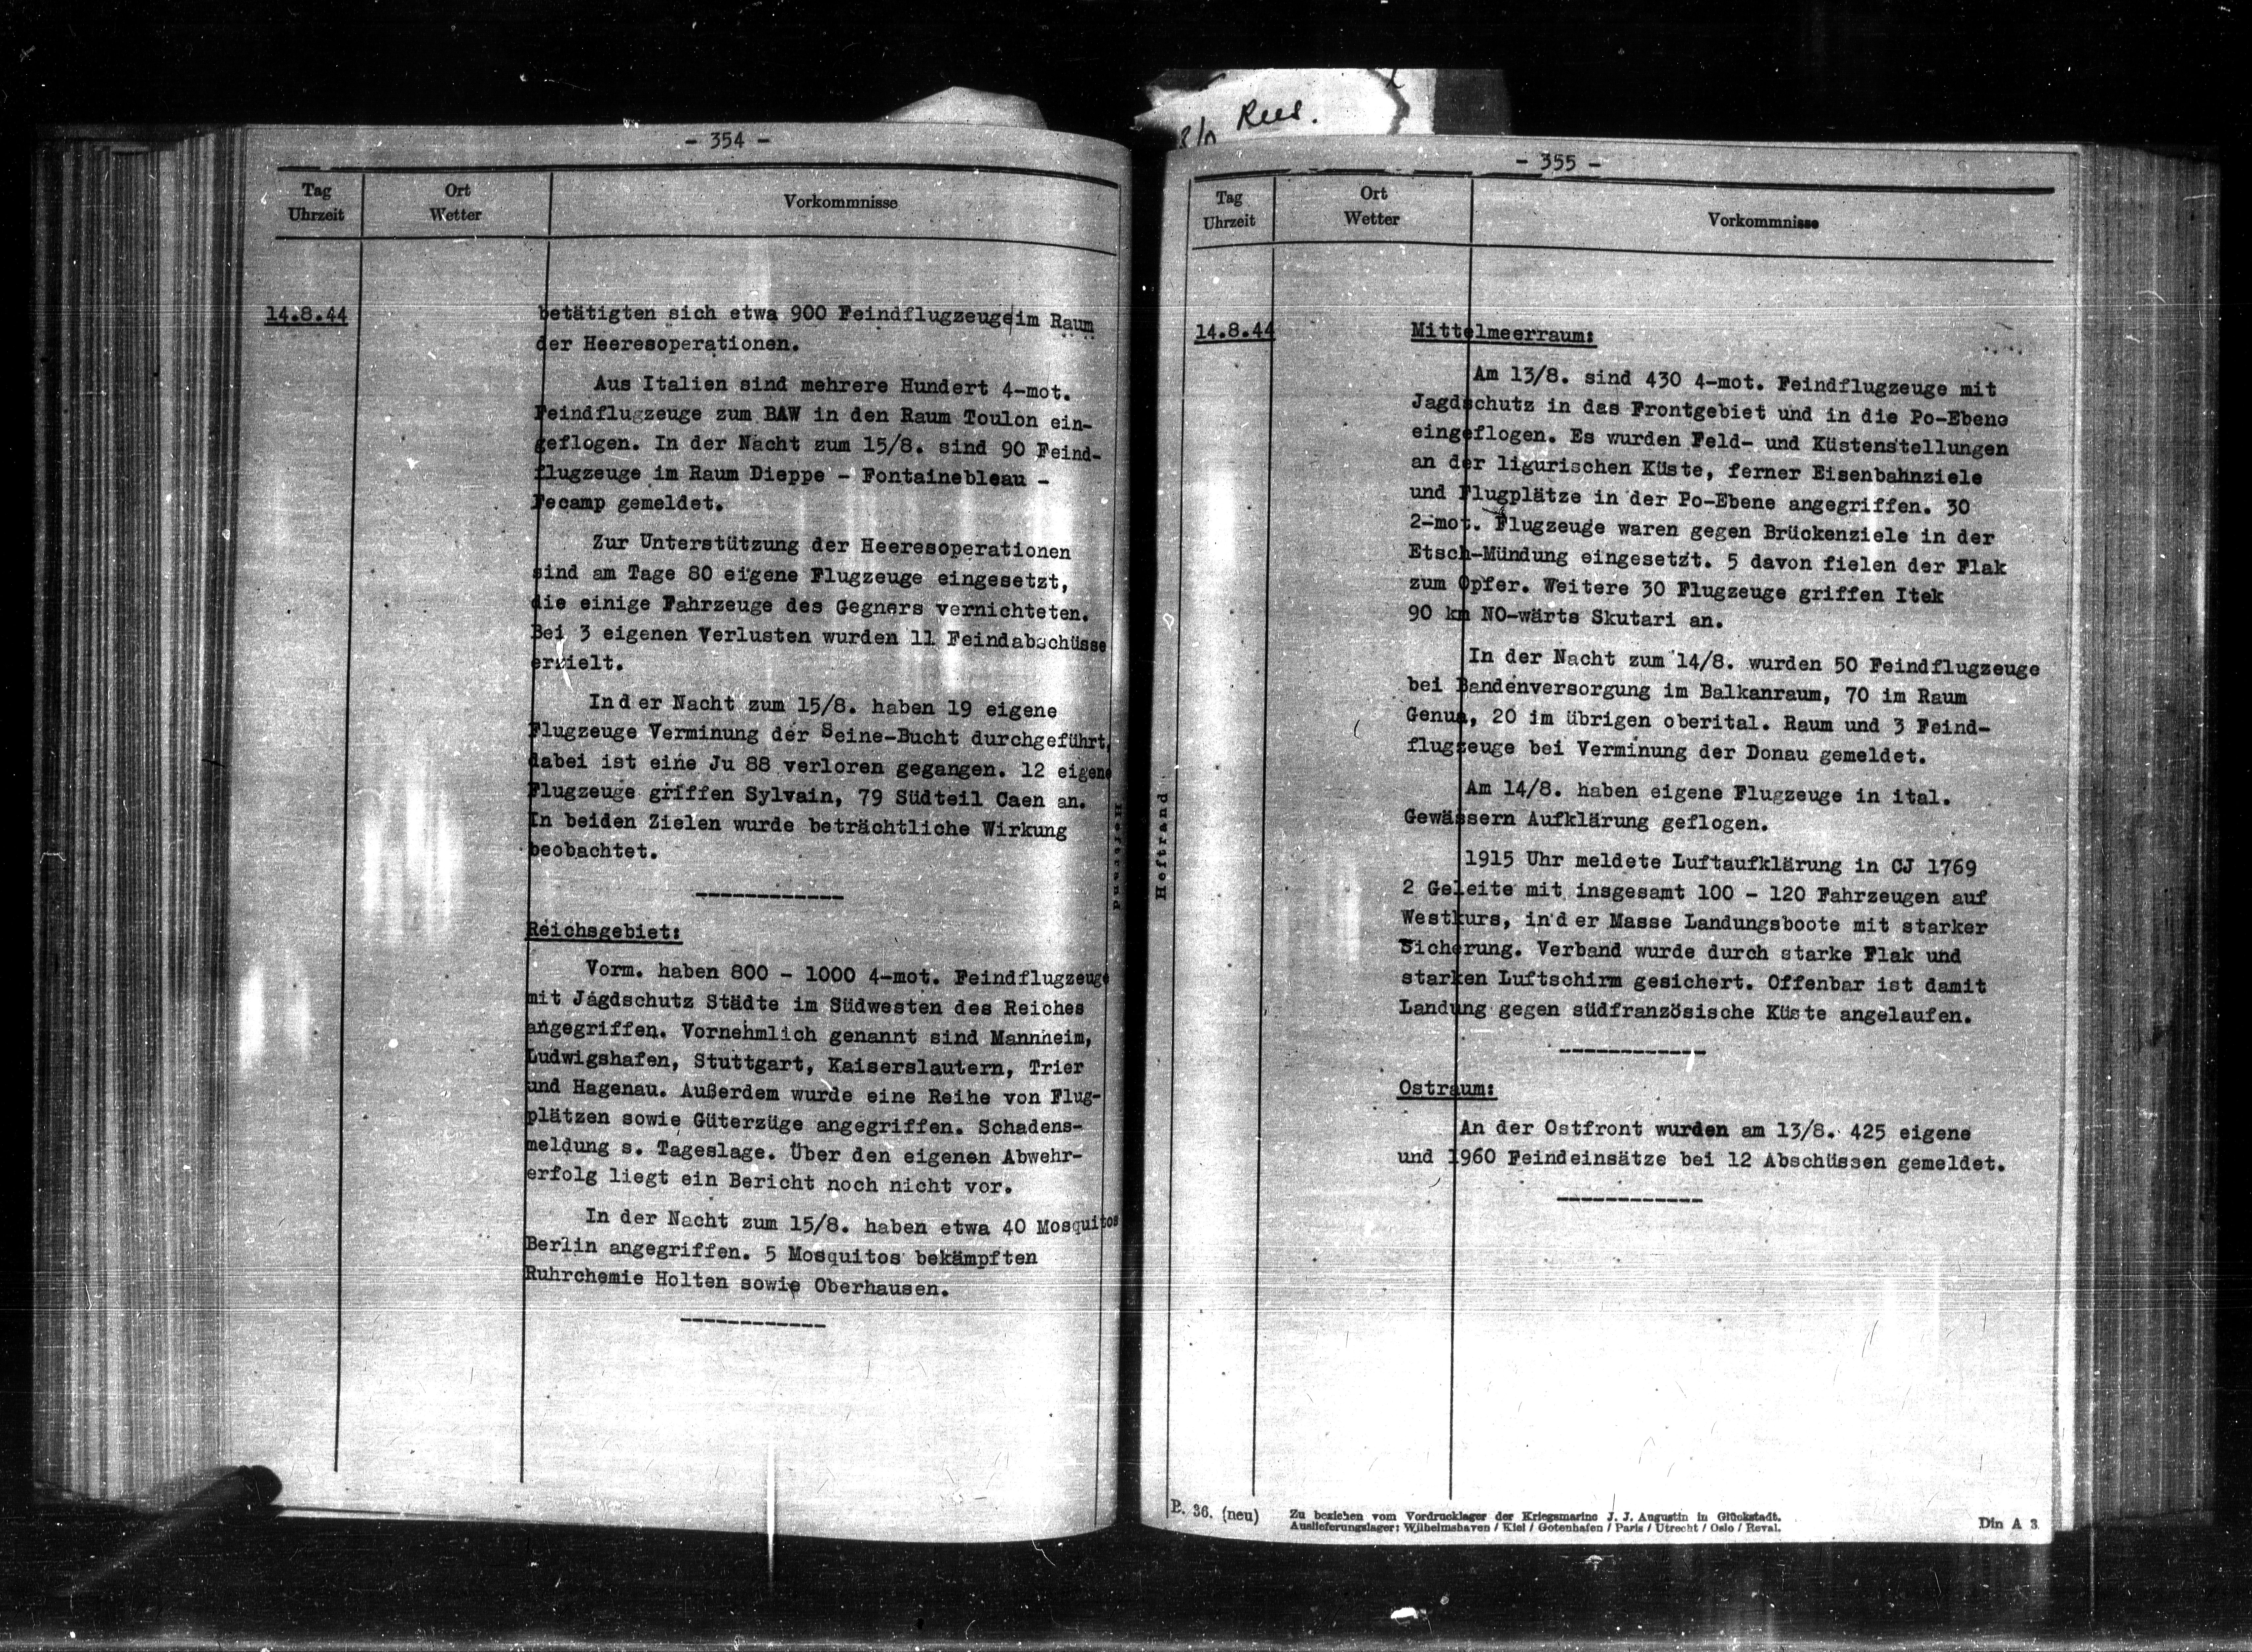 Rees.
- 354 -
Tag
Uhrzeit
Ort
Wetter
Vorkommnisse
14.8.44
betätigten sich etwa 900 Feindflugzeuge im Raum
der Heeresoperationen.
Aus Italien sind mehrere Hundert 4-mot.
Feindflugzeuge zum BAW in den Raum Toulon ein-
geflogen. In der Nacht zum 15/8. sind 90 Feind-
flugzeuge im Raum Dieppe - Fontainebleau -
Fecamp gemeldet.
Zur Unterstützung der Heeresoperationen
sind am Tage 80 eigene Flugzeuge eingesetzt,
die einige Fahrzeuge des Gegners vernichteten.
Bei 3 eigenen Verlusten wurden 11 Feindabschüsse
erzielt.
Ind er Nacht zum 15/8. haben 19 eigene
Flugzeuge Verminung der Seine-Bucht durchgeführt,
dabei ist eine Ju 88 verloren gegangen. 12 eigene
Flugzeuge griffen Sylvain, 79 Südteil Caen an.
In beiden Zielen wurde beträchtliche Wirkung
beobachtet.
Reichsgebiet:
Vorm. haben 800 - 1000 4-mot. Feindflugzeuge
mit Jagdschutz Städte im Südwesten des Reiches
angegriffen. Vornehmlich genannt sind Mannheim,
Ludwigshafen, Stuttgart, Kaiserslautern, Trier
und Hagenau. Außerdem wurde eine Reihe von Flug-
plätzen sowie Güterzüge angegriffen. Schadens-
meldung s. Tageslage. Über den eigenen Abwehr-
erfolg liegt ein Bericht noch nicht vor.
In der Nacht zum 15/8. haben etwa 40 Mosquitos
Berlin angegriffen. 5 Mosquitos bekämpften
Ruhrchemie Holten sowie Oberhausen.
Heftrand
Heftrand
- 355 -
Tag
Uhrzeit
Ort
Wetter
Vorkommnisse
14.8.44
Mittelmeerraum:
Am 13/8. sind 430 4-mot. Feindflugzeuge mit
Jagdschutz in das Frontgebiet und in die Po-Ebene
eingeflogen. Es wurden Feld- und Küstenstellungen
an der ligurischen Küste, ferner Eisenbahnziele
und Flugplätze in der Po-Ebene angegriffen. 30
2-mot. Flugzeuge waren gegen Brückenziele in der
Etsch-Mündung eingesetzt. 5 davon fielen der Flak
zum Opfer. Weitere 30 Flugzeuge griffen Itek
90 km NO-wärts Skutari an.
In der Nacht zum 14/8. wurden 50 Feindflugzeuge
bei Bandenversorgung im Balkanraum, 70 im Raum
Genua, 20 im übrigen oberital. Raum und 3 Feind-
flugzeuge bei Verminung der Donau gemeldet.
Am 14/8. haben eigene Flugzeuge in ital.
Gewässern Aufklärung geflogen.
1915 Uhr meldete Luftaufklärung in CJ 1769
2 Geleite mit insgesamt 100 - 120 Fahrzeugen auf
Westkurs, in d er Masse Landungsboote mit starker
Sicherung. Verband wurde durch starke Flak und
starken Luftschirm gesichert. Offenbar ist damit
Landung gegen südfranzösische Küste angelaufen.
Ostraum:
An der Ostfront wurden am 13/8. 425 eigene
und 1960 Feindeinsätze bei 12 Abschüssen gemeldet.
B. 36. (neu)
Zu beziehen vom Vordrucklager der Kriegsmarine J. J. Augustin in Glückstadt.
Auslieferungslager: Wilhelmshaven / Kiel / Gotenhafen / Paris / Utrecht / Oslo / Reval.
Din A 3